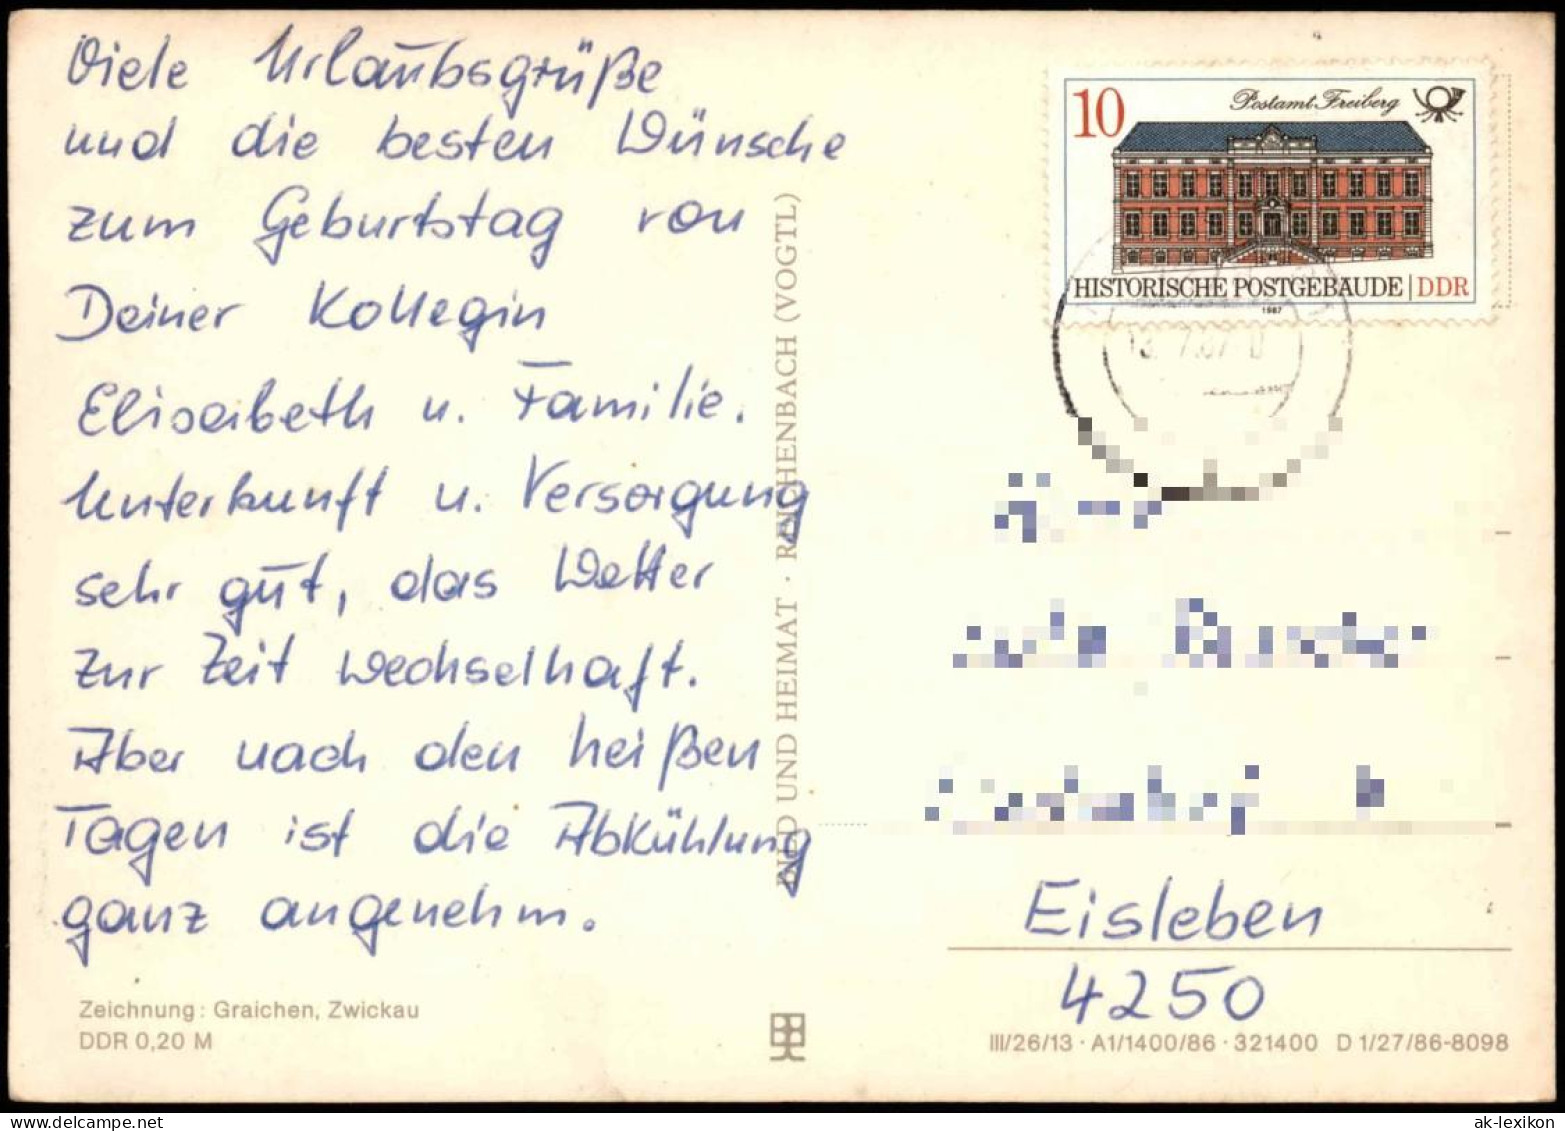 Viele Urlaubsgrüße
und die besten Wünsche
zum Geburtstag von
Deiner Kollegin
Elisabeth u. Familie.
Unterkunft u. Versorgung
sehr gut, das Wetter
zur Zeit wechselhaft.
Aber nach den heißen
Tagen ist die Abkühlung
ganz angenehm.
Zeichnung: Graichen, Zwickau
DDR 0,20 M
BILD UND HEIMAT · REICHENBACH (VOGTL)
10
Postamt Freiberg
HISTORISCHE POSTGEBÄUDE | DDR
1987
13.7.87
Eisleben
4250
III/26/13 · A1/1400/86 · 321400 D 1/27/86-8098
www.delcampe.net
ak-lexikon